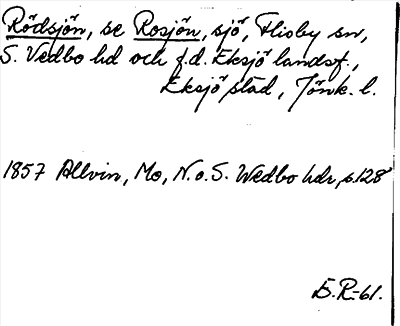 Rödsjön, se Rosjön, sjö, Flisby sn,
S. Vedbo hd och f.d. Eksjö landsf.,
Eksjö stad, Jönk. l.
1857 Allvin, Mo, N.o.S. Wedbo hdr, s.128
E.R-61.